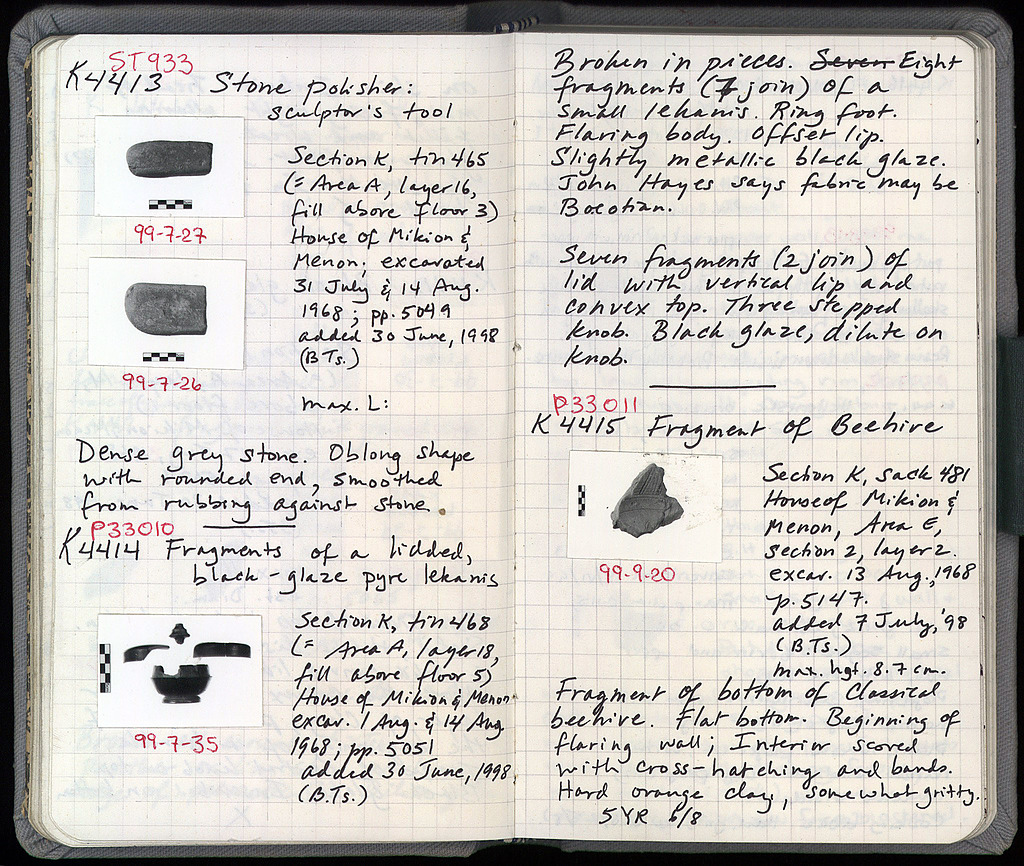 ST933
K4413 Stone polisher:
sculptor's tool
Section K, tin 465
(= Area A, layer 16,
fill above floor 3)
House of Mikion &
Menon; excavated
31 July & 14 Aug.
1968; pp. 5049
added 30 June, 1998
(B.Ts.)
99-7-27
99-7-26
max. L:
Dense grey stone. Oblong shape
with rounded end, smoothed
from rubbing against stone.
P33010
K4414 Fragments of a lidded,
black-glaze pyre lekanis
Section K, tin 468
(= Area A, layer 18,
fill above floor 5)
House of Mikion & Menon
excav. 1 Aug. & 14 Aug.
1968; pp. 5051
added 30 June, 1998
(B.Ts.)
99-7-35
Broken in pieces. Seven Eight
fragments (7 join) of a
small lekanis. Ring foot.
Flaring body. Offset lip.
Slightly metallic black glaze.
John Hayes says fabric may be
Boeotian.
Seven fragments (2 join) of
lid with vertical lip and
convex top. Three stepped
knob. Black glaze, dilute on
knob.
P33011
K4415 Fragment of Beehive
Section K, sack 481
House of Mikion &
Menon, Area E,
section 2, layer 2.
excav. 13 Aug., 1968
p. 5147.
added 7 July, '98
(B.Ts.)
max. hgt. 8.7 cm.
99-9-20
Fragment of bottom of Classical
beehive. Flat bottom. Beginning of
flaring wall; Interior scored
with cross-hatching and bands.
Hard orange clay, somewhat gritty.
5 YR 6/8